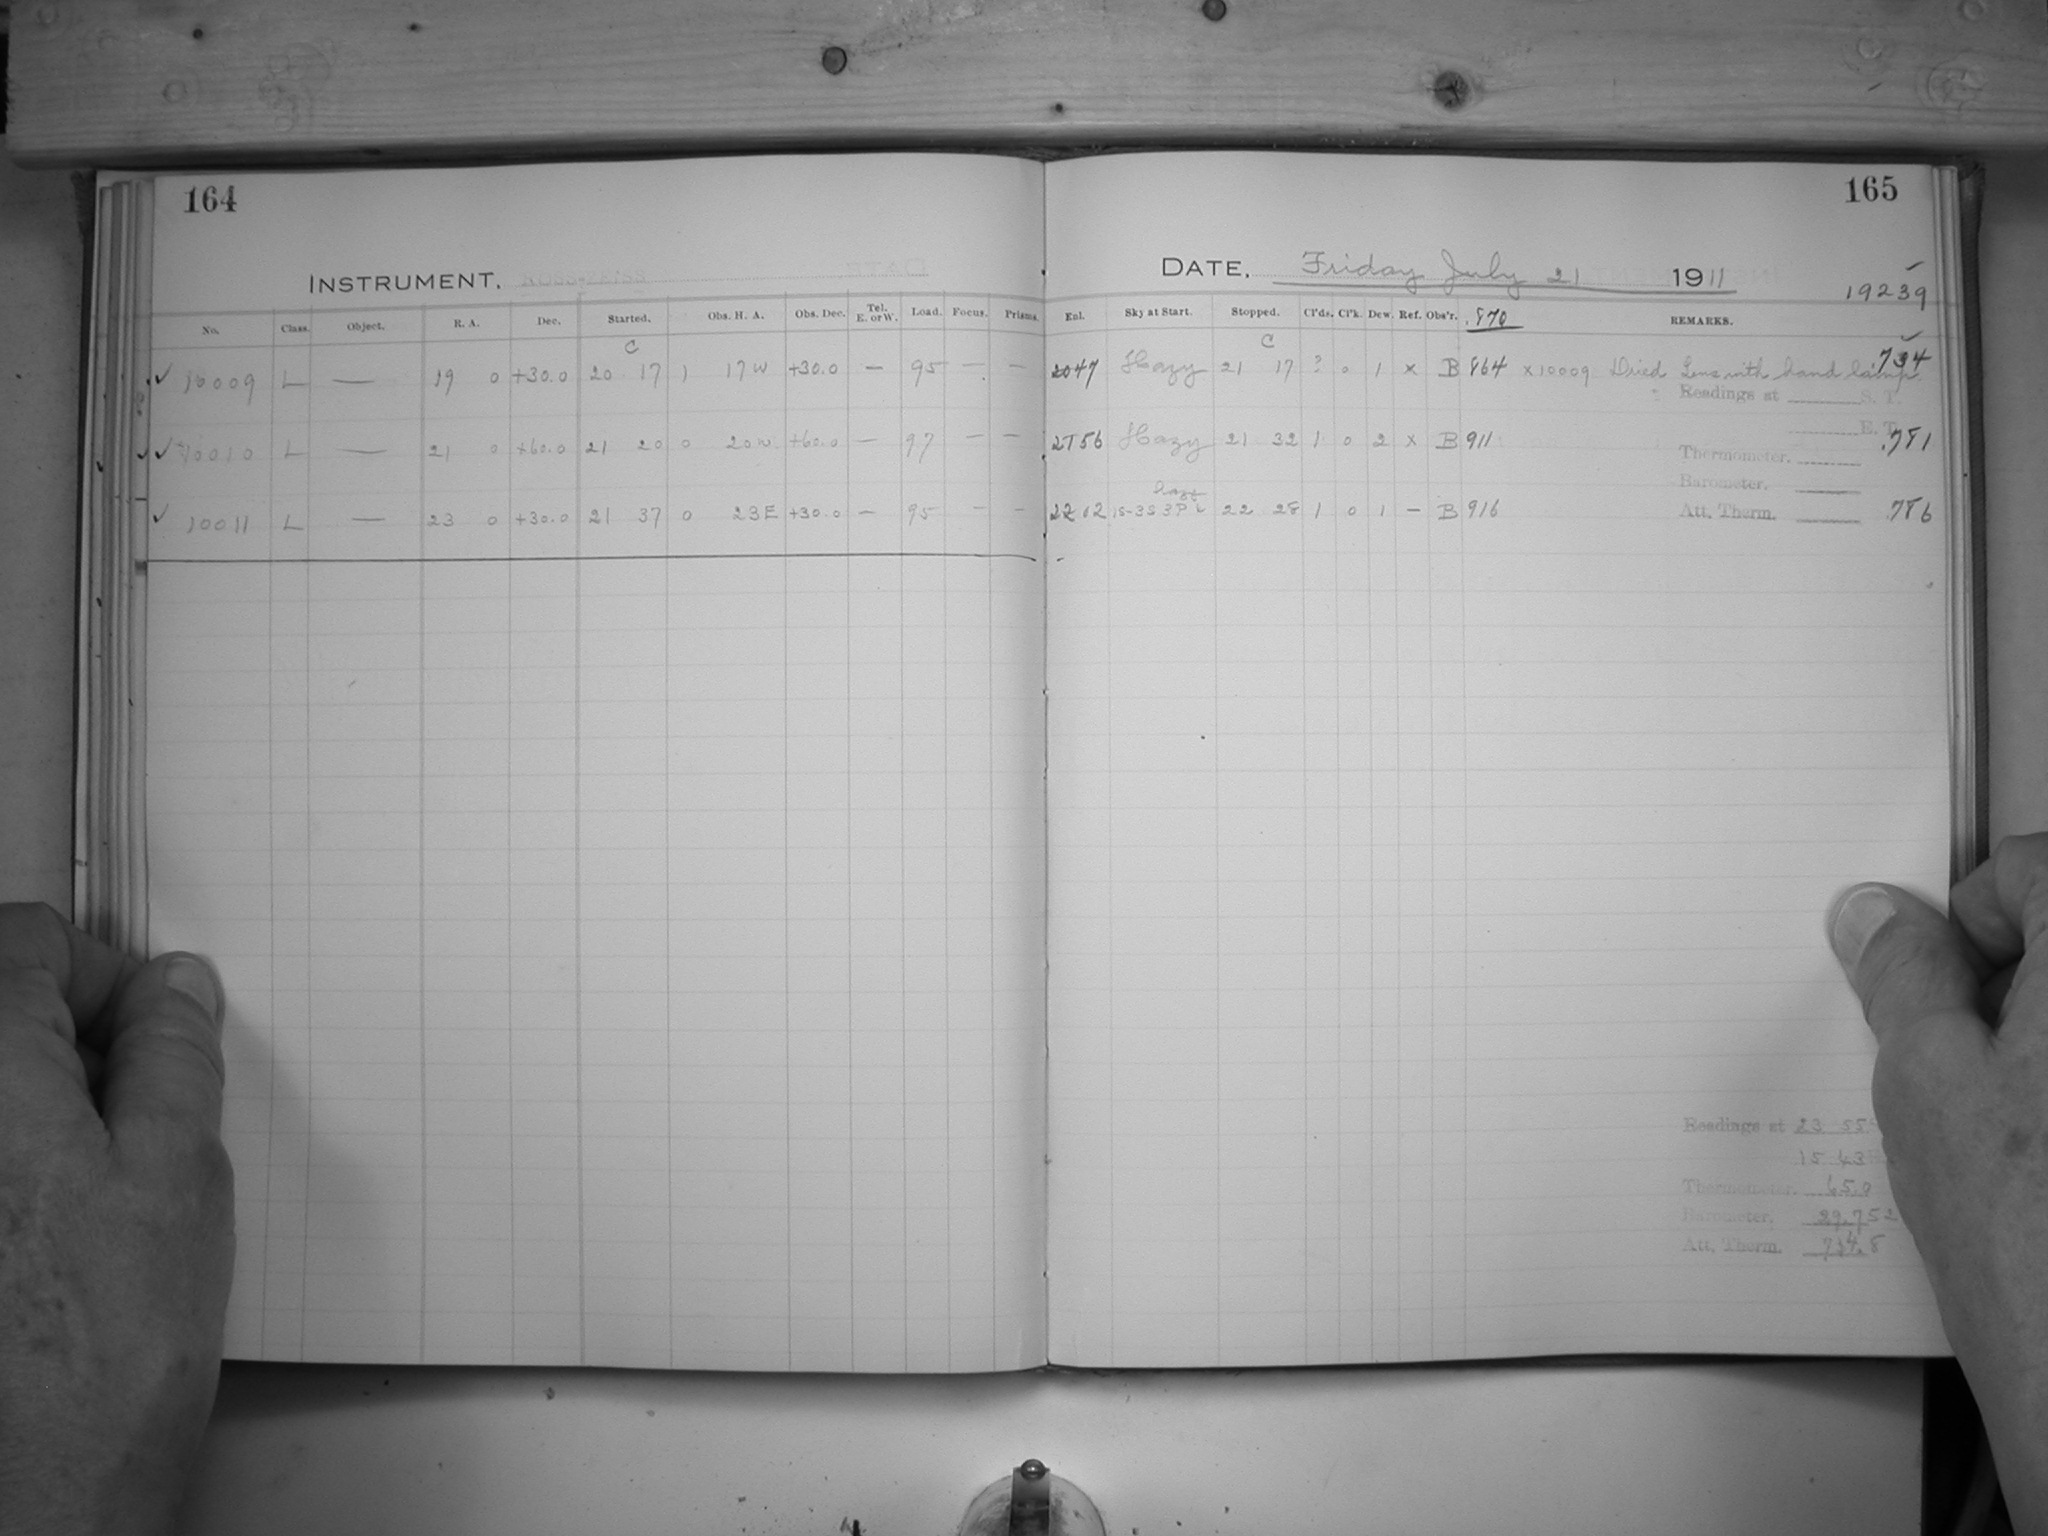 164
INSTRUMENT, ROSS-ZEISS
No. Class. Object. R. A. Dec. Started. Obs. H. A. Obs. Dec. Tel. E. or W. Load. Focus. Prisms.
✓ 10009 L — 19 0 +30.0 20 17 C 1 17 W +30.0 — 95 — —
✓ 10010 L — 21 0 +60.0 21 20 0 20 W +60.0 — 97 — —
✓ 10011 L — 23 0 +30.0 21 37 0 23 E +30.0 — 95 — —
165
DATE, Friday July 21 1911
19239
Exl. Sky at Start. Stopped. Cl'ds. Cl'k. Dew. Ref. Obs'r. .870 REMARKS.
2047 Hazy 21 17 C ? 0 1 x B 864 x10009 Dried Lens with hand lamp. .734
Readings at S. T.
E. T.
2156 Hazy 21 32 1 0 2 x B 911 .781
Thermometer.
Barometer.
2202 haze 22 28 1 0 1 — B 916 .786
Att. Therm.
Readings at 23 55
15 43
Thermometer. 65.0
Barometer. 29.752
Att. Therm. 734.8